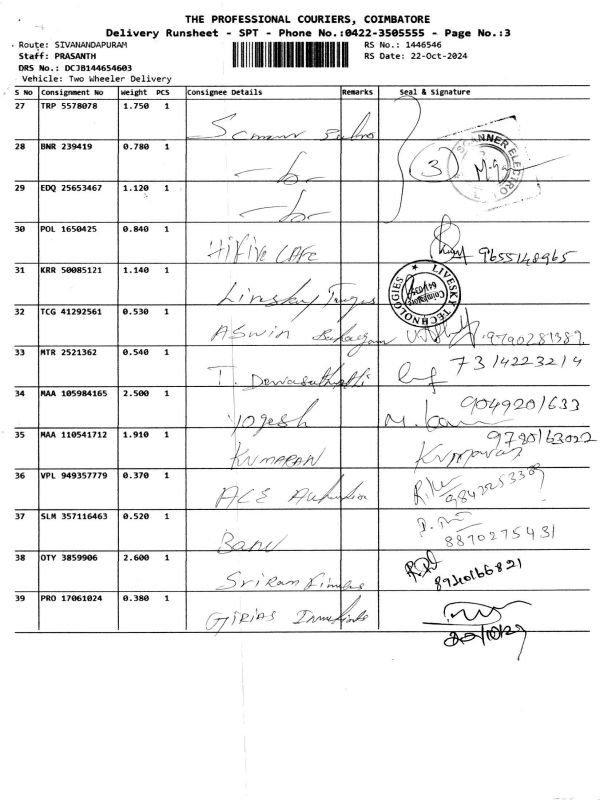 THE PROFESSIONAL COURIERS, COIMBATORE
Delivery Runsheet - SPT - Phone No.:0422-3505555 - Page No.:3
Route: SIVANANDAPURAM RS No.: 1446546
Staff: PRASANTH RS Date: 22-Oct-2024
DRS No.: DCJB144654603
Vehicle: Two Wheeler Delivery
S No Consignment No Weight PCS Consignee Details Remarks Seal & Signature
27 TRP 5578078 1.750 1
28 BNR 239419 0.780 1 3 SCANNER
29 EDQ 25653467 1.120 1
30 POL 1650425 0.840 1 Hifive CAFE 9655148965
31 KRR 50085121 1.140 1 LIVESKY TECHNOLOGIES Coimbatore
32 TCG 41292561 0.530 1 ASwin 9790281389
33 MTR 2521362 0.540 1 T. 7314223214
34 MAA 105984165 2.500 1 yogesh 9049201633
35 MAA 110541712 1.910 1 KUMARAN 9780163022
36 VPL 949357779 0.370 1 ACE 9842253389
37 SLM 357116463 0.520 1 Banu 8870275431
38 OTY 3859906 2.600 1 Sriram
39 PRO 17061024 0.380 1 GIRIAS